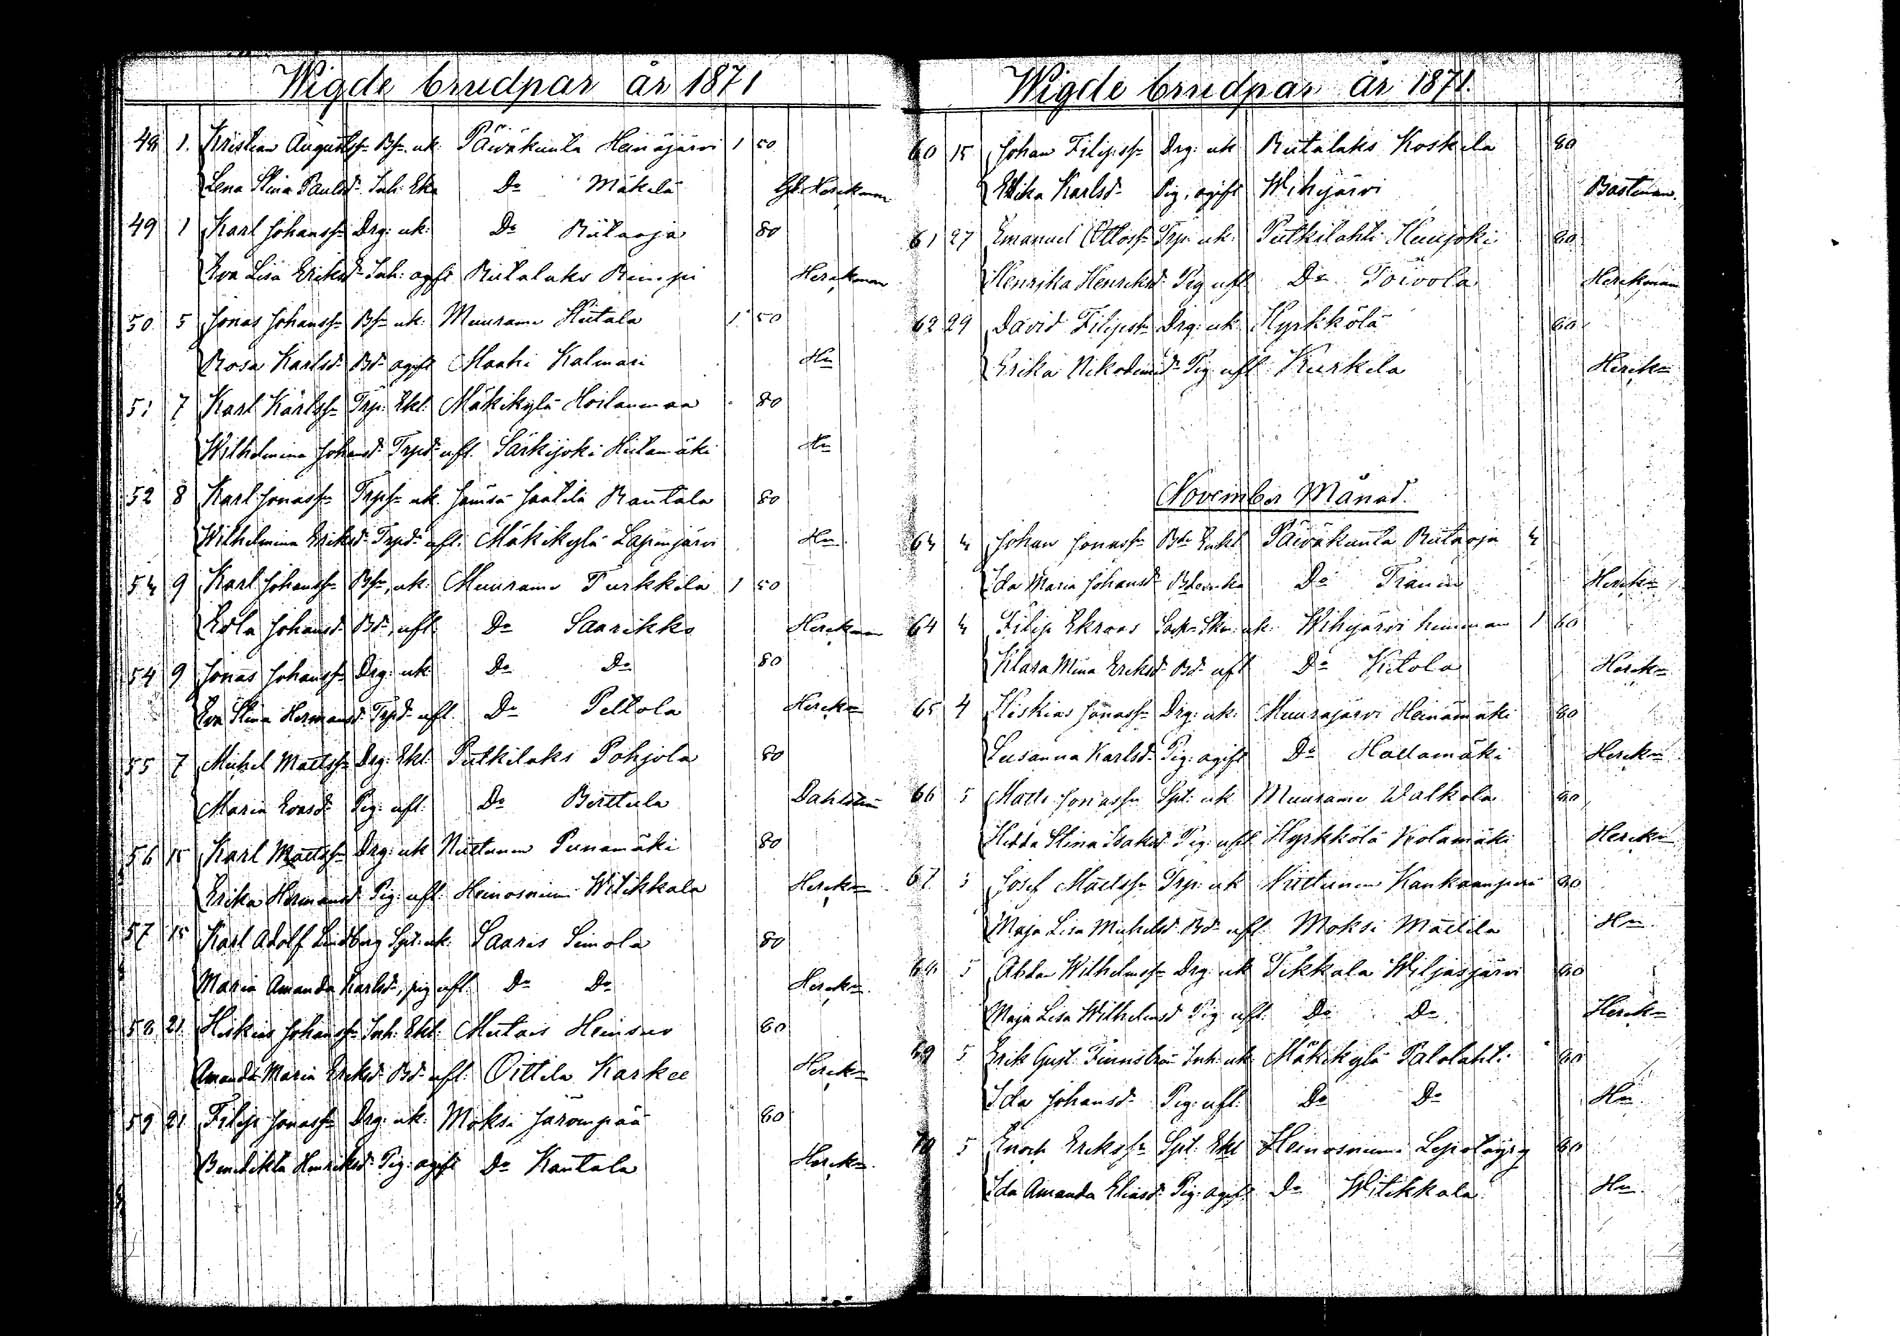 Wigde brudpar år 1871
48 1. Kristian Augustss: Bs: uk. Päiväkunta Heinäjärvi 1 50
Lena Stina Paulsd: Inh: Eka Do Mäkelä Gb. Herckman
49 1 Karl Johanss: Drg: uk: Do Riitaoja 80
Eva Lisa Eriksd: Inh: ogft Rutalaks Rimpi Herckman
50 5 Jonas Johanss: Bs: uk: Muurame Hiitala 1 50
Rosa Karlsd: Bd: ogft Maahi Kalmari Hn
51 7 Karl Karlss: Trp: Ekl: Mäkikylä Hoilanmaa 80
Wilhelmina Johansd: Trpd: ofl. Särkijoki Hiitamäki Hn
52 8 Karl Jonass: Trps: uk. Jämsä Jaatila Rautala 80
Wilhelmina Eriksd: Trpd: ofl: Mäkikylä Lapinjärvi Hn
54 9 Karl Johanss: Bs: uk: Muurame Turkkila 1 50
Edla Johansd: Bd: ofl: Do Saarikko Herckman
54 9 Jonas Johanss: Drg: uk: Do Do 80
Eva Stina Hermansd: Trpd: ofl. Do Peltola Herckn
55 7 Michel Mattss: Drg: Ekl: Putkilaks Pohjola 80
Maria Evasd: Pig: ofl: Do Berttula Dahlström
56 15 Karl Mattss: Drg: uk Niittunen Punamäki 80
Erika Hermansd: Pig: ofl: Heinosniemi Witikkala Herckn
57 15 Karl Adolf Lindberg Spt: uk: Saaris Simola 80
Maria Amanda Karlsd:, pig ofl: Do Do Herckn.
58 21. Hiskias Johanss: Inh: Ekl: Mutais Heinsuo 80
Amanda Maria Eriksd: Bd: ofl: Oittila Karkee Herckn
59 21 Filip Jonass: Drg: uk: Moksi Järvenpää 80
Benedikta Henriksd: Pig: ogft Do Kautala Herckn.
Wigde brudpar år 1871.
60 15 Johan Filipss: Drg: uk Rutalaks Koskela 80
Erika Karlsd: Pig, ogift Wihijärvi Bastman.
61 27 Emanuel Ottoss: Trp: uk: Putkilahti Kuusjoki 80
Henrika Henriksd: Pig ofl: Do Toivola Herckman
62 29 David Filipss: Drg: uk Kyrkkölä 80
Erika Nikodemusd: Pig ofl Kurkela Herckn
November Månad.
64 4 Johan Jonass: Bde Enkl Päiväkunta Riitaoja 4
Ida Maria Johansd: Do Herckn
64 4 Filip Ekroos uk: Wihijärvi hemman 1 60
Klara Mina Eriksd: Bd: ofl Do Kitola Herckn
65 4 Hiskias Jonass: Drg: uk: Muurajärvi Heinämäki 80
Susanna Karlsd: Pig: ogift Do Hallamäki Herckn
66 5 Matts Jonass: Spt: uk Muurame Walkola 80
Hedda Stina Isaksd: Pig: ofl Kyrkkölä Kolamäki Herckn
67 5 Josef Mattss: Trp: uk Niittunen Kankaanperä 80
Maja Lisa Michelsd: Bd: ofl Moksi Mattila Hn.
68 5 Wilhelmss: Drg: uk Tikkala Wiljasjärvi 80
Maja Lisa Wilhelmsd: Pig ofl: Do Do Herckn
69 5 Erik Gust. Finnström Inh: uk Mäkikylä Palolahti 80
Ida Johansd: Pig: ofl: Do Do Hn.
70 5 Enoch Erikss: Spt: Ekl Heinosniemi 80
Ida Amanda Eliasd: Pig: ogft Do Witikkala Hn.